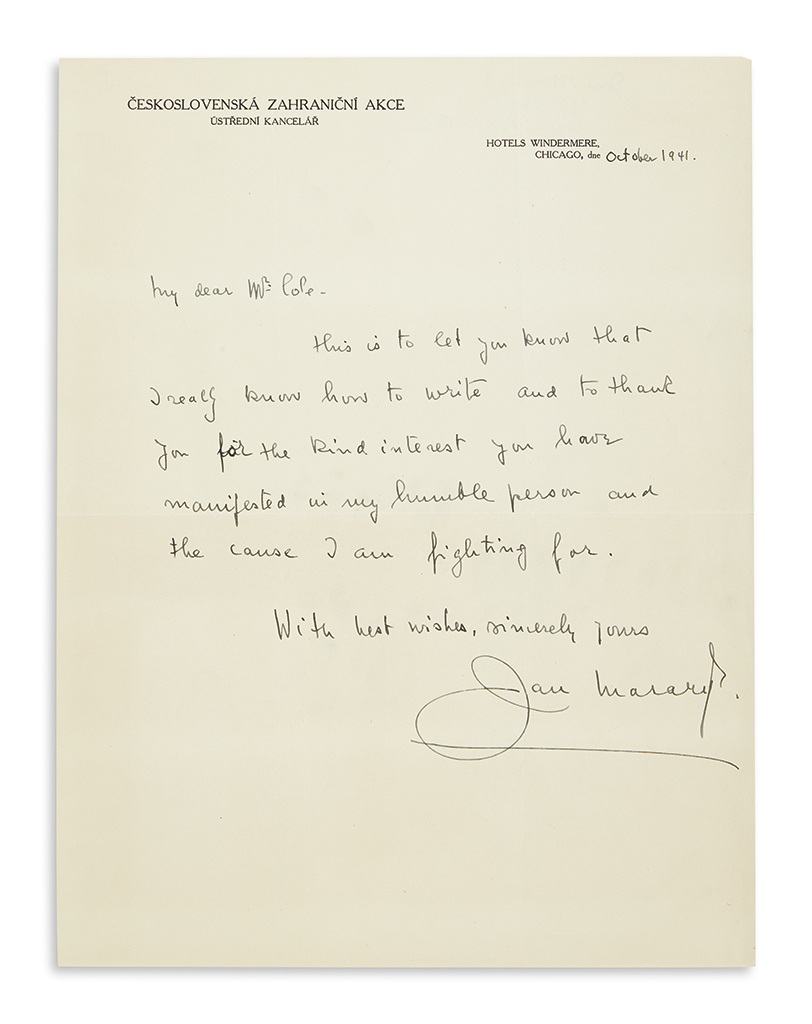 ČESKOSLOVENSKÁ ZAHRANIČNÍ AKCE
ÚSTŘEDNÍ KANCELÁŘ
HOTELS WINDERMERE,
CHICAGO, dne October 1941.
My dear Mr. Cole -
this is to let you know that
I really know how to write and to thank
you for the kind interest you have
manifested in my humble person and
the cause I am fighting for.
With best wishes, sincerely yours
Jan Masaryk.